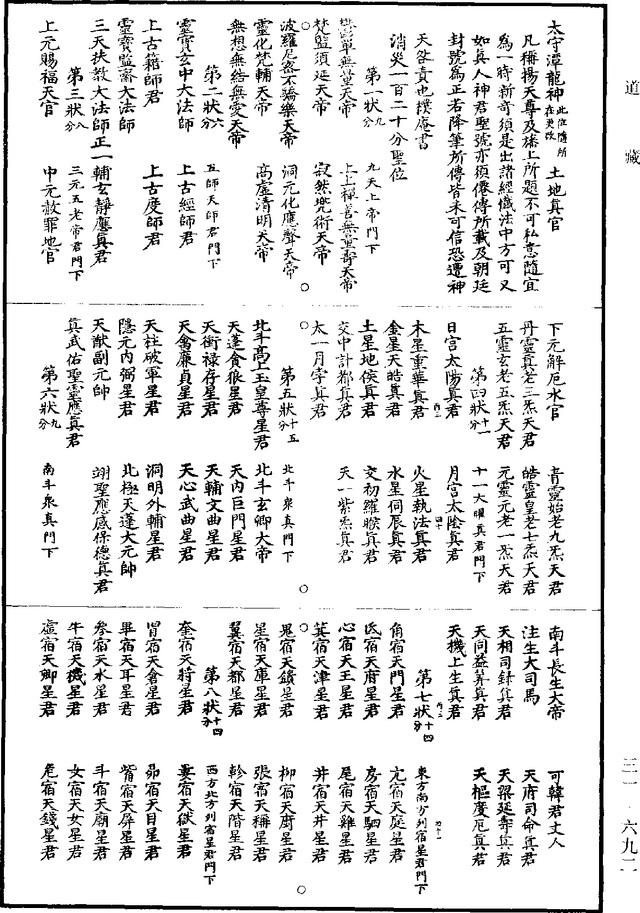 道藏
太守潭龍神此位隨所在更改 土地真官
凡稱揚天尊及榜上所題不可私意隨宜
為一時新奇須是出諸經懺法中方可又
如真人神君聖號亦須僊傳所載及朝廷
封號為正若降筆所傳皆未可信恐遭神
天咎責也樸庵書
消災一百二十分聖位
第一狀九分 九天上帝門下
鬱單無量天帝 上上禪善無量壽天帝
梵監須延天帝 寂然兜術天帝
波羅尼密不驕樂天帝 洞元化應聲天帝
靈化梵輔天帝 高虛清明天帝
無想無結無愛天帝
第二狀六分 五師天師君門下
靈寶玄中大法師 上古經師君
上古籍師君 上古度師君
靈寶監齋大法師
三天扶教大法師正一輔玄靜應真君
第三狀八分 三元五老帝君門下
上元賜福天官 中元赦罪地官
下元解厄水官 青靈始老九炁天君
丹靈真老三炁天君 皓靈皇老七炁天君
五靈玄老五炁天君 元靈元老一炁天君
第四狀十一分 十一大曜真君門下
日宮太陽真君 月宮太陰真君
木星重華真君 火星執法真君
金星天皓真君 水星伺辰真君
土星地侯真君 交初羅睺真君
交中計都真君 天一紫炁真君
太一月孛真君
第五狀十五分 北斗衆真門下
北斗高上玉皇尊星君 北斗玄卿大帝
天蓬貪狼星君 天內巨門星君
天衝祿存星君 天輔文曲星君
天禽廉貞星君 天心武曲星君
天柱破軍星君 洞明外輔星君
隱元內弼星君 北極天蓬大元帥
天猷副元帥 翊聖應感保德真君
真武佑聖靈應真君
第六狀九分 南斗衆真門下
南斗長生大帝 可韓君丈人
注生大司馬 天府司命真君
天相司錄真君 天梁延壽真君
天同益筭真君 天樞度厄真君
天機上生真君
第七狀十四分 東方南方列宿星君門下
角宿天門星君 亢宿天庭星君
氐宿天府星君 房宿天駟星君
心宿天王星君 尾宿天雞星君
箕宿天津星君 井宿天井星君
鬼宿天鑕星君 柳宿天廚星君
星宿天庫星君 張宿天稱星君
翼宿天都星君 軫宿天階星君
第八狀十四分 西方北方列宿星君門下
奎宿天將星君 婁宿天獄星君
胃宿天倉星君 昴宿天目星君
畢宿天耳星君 觜宿天屏星君
參宿天水星君 斗宿天廟星君
牛宿天機星君 女宿天女星君
虛宿天卿星君 危宿天錢星君
三一·六九二